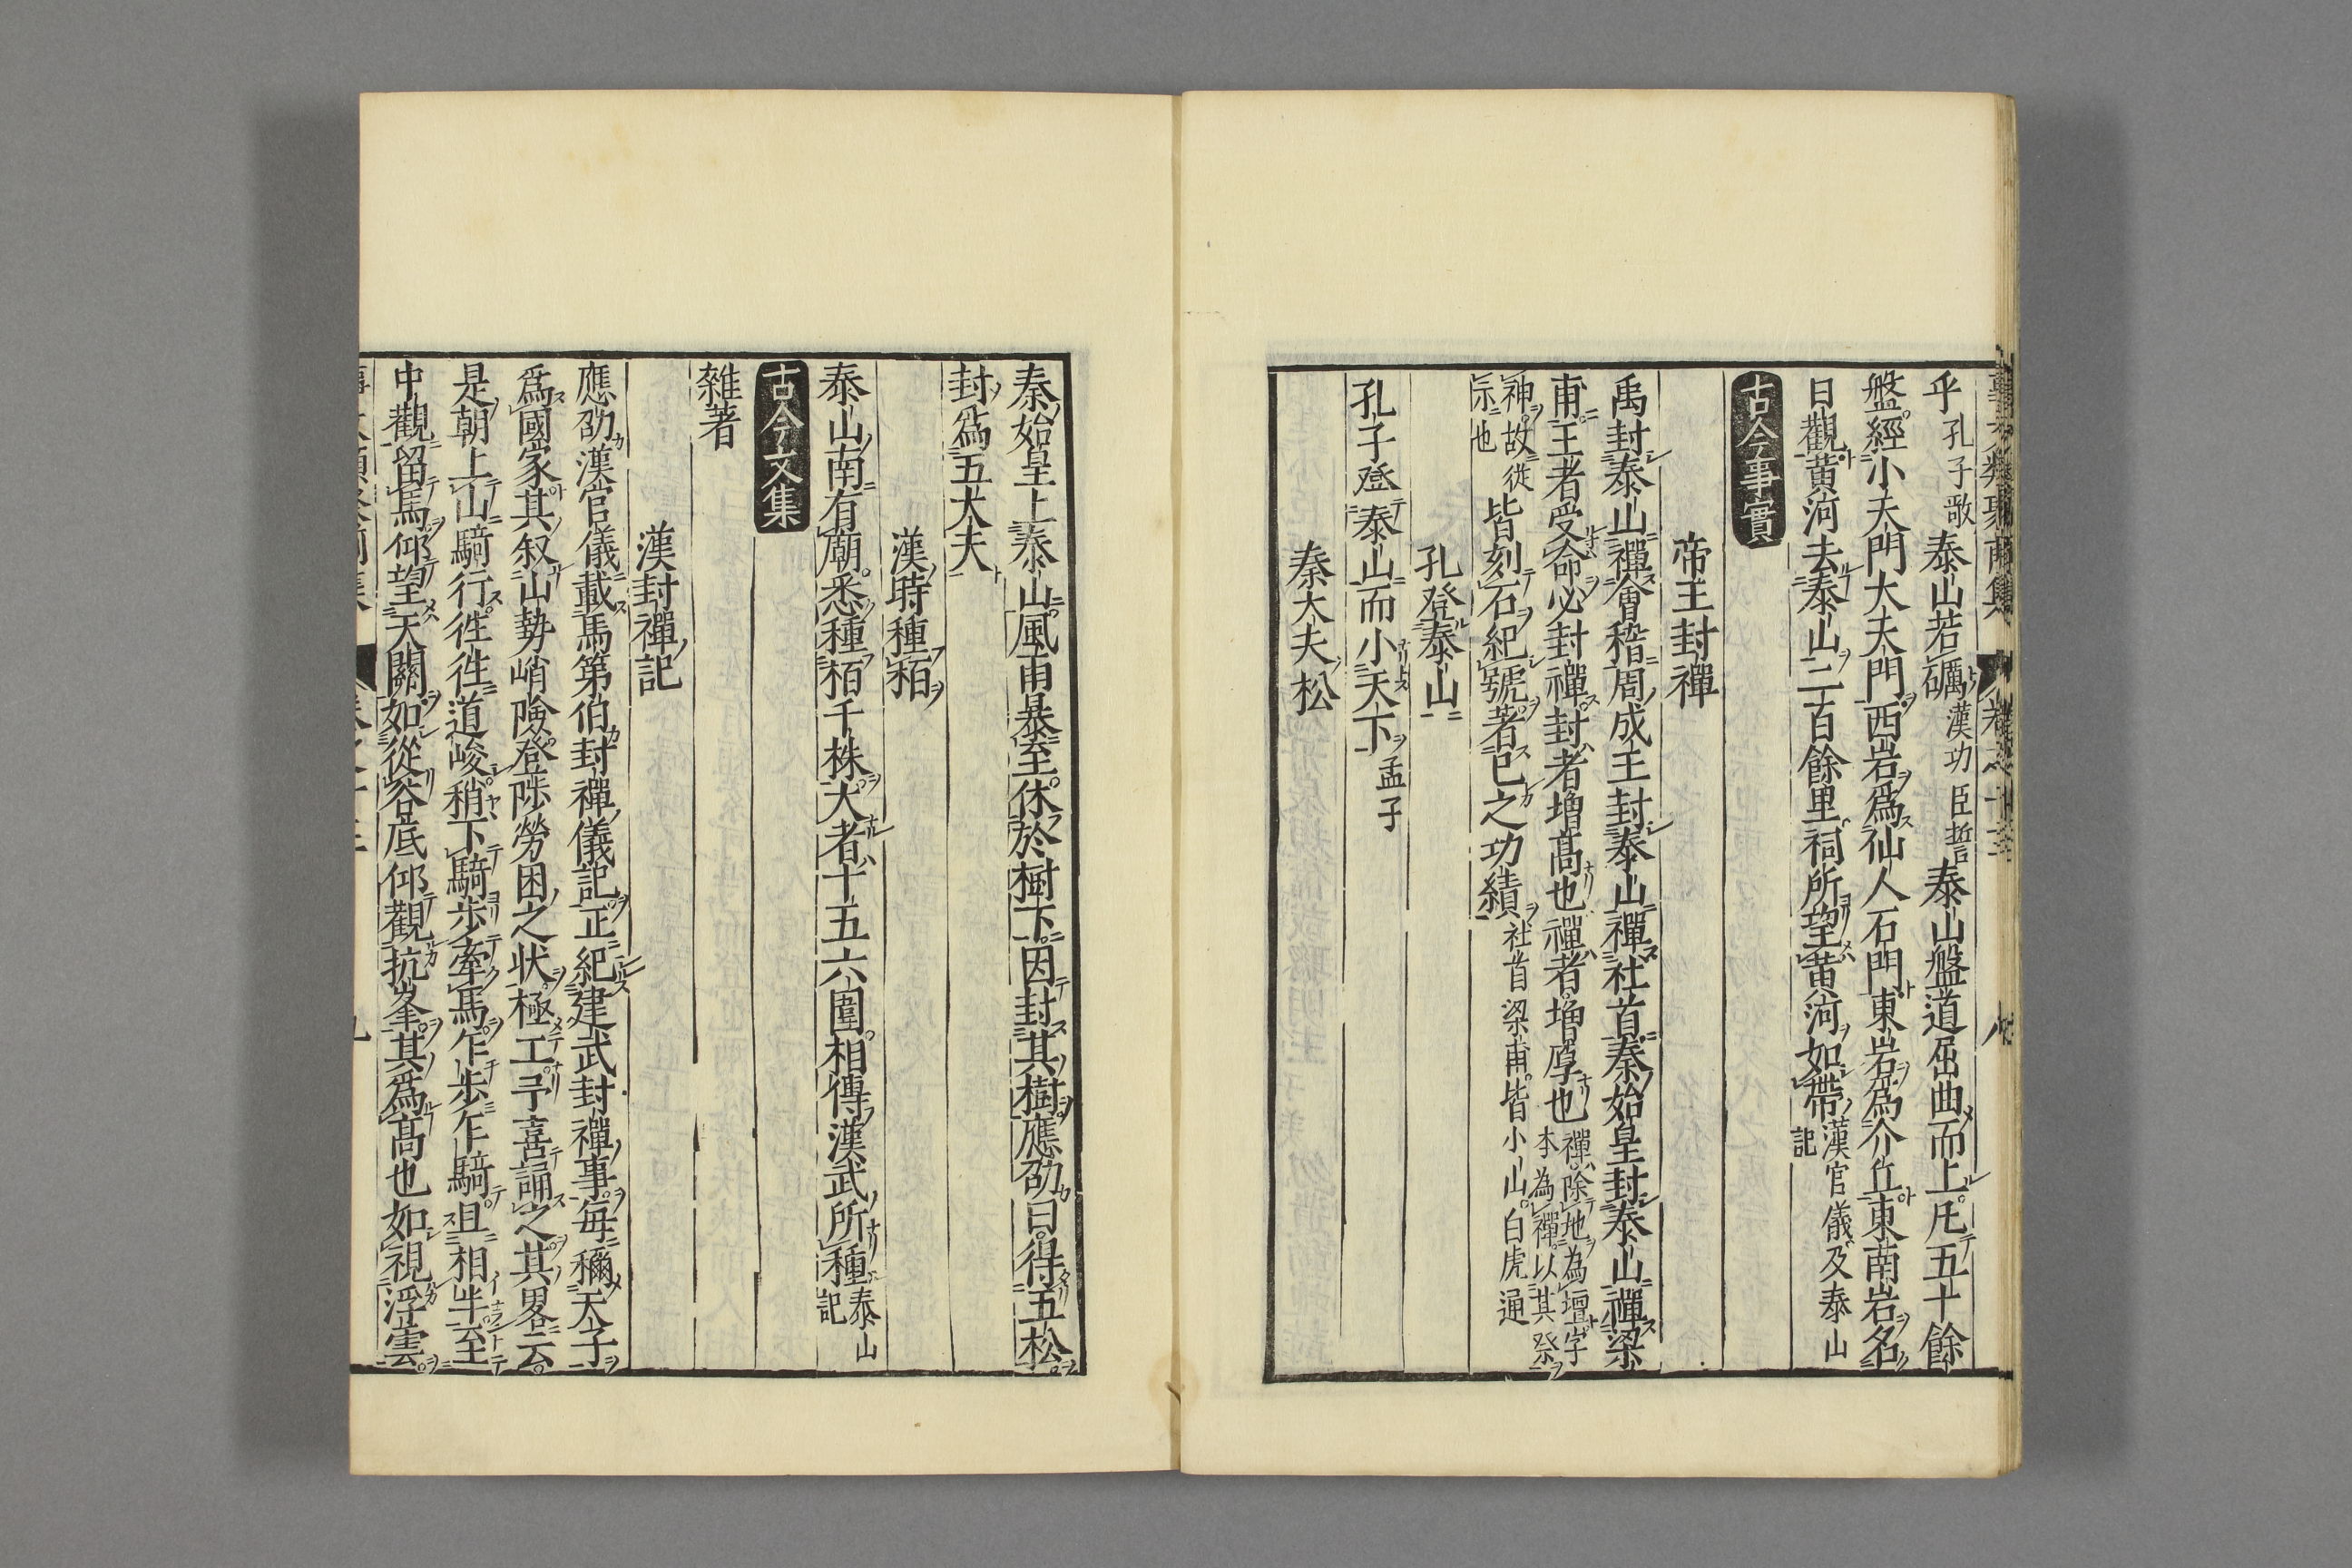 乎孔子歌泰山若礪漢功臣誓泰山盤道屈曲而上凡五十餘
盤經小天門大天門西岩爲仙人石門東岩爲介丘東南岩名
日觀黄河去泰山二百餘里祠所望黄河如帶漢官儀及泰山記
古今事實
帝王封禪
禹封泰山禪會稽周成王封泰山禪社首秦始皇封泰山禪梁
甫王者受命必封禪封者增髙也禪者增厚也禪除地為壇字本為禪以其祭
神故從示也皆刻石紀號著已之功績社首梁甫皆小山白虎通
孔登泰山
孔子登泰山而小天下孟子
秦大夫松
秦始皇上泰山風雨暴至休於樹下因封其樹應劭曰得五松
封爲五大夫
漢時種栢
泰山南有廟悉種栢千株大者十五六圍相傳漢武所種泰山記
古今文集
雜著
漢封禪記
應劭漢官儀載馬第伯封禪儀記正紀建武封禪事每稱天子
爲國家其叙山勢峭險登陟勞困之狀極工予喜誦之其畧云
是朝上山騎行徃徃道峻稍下騎步牽馬乍步乍騎且相半至
中觀留馬仰望天關如從谷底仰觀抗峯其爲髙也如視浮雲